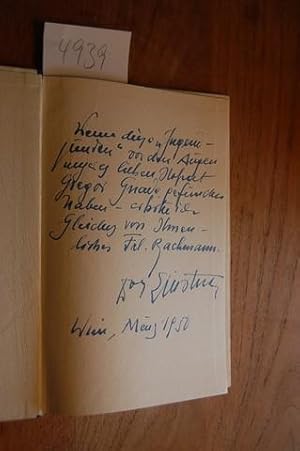 4939
Wenn diese „Jugend-
sünden“ vor den Augen
lieben Hofrat
Gregor Gnade gefunden
haben – erbitte ich
Gleiches von Ihnen –
liebes Frl. Bachmann.
Wien, März 1950